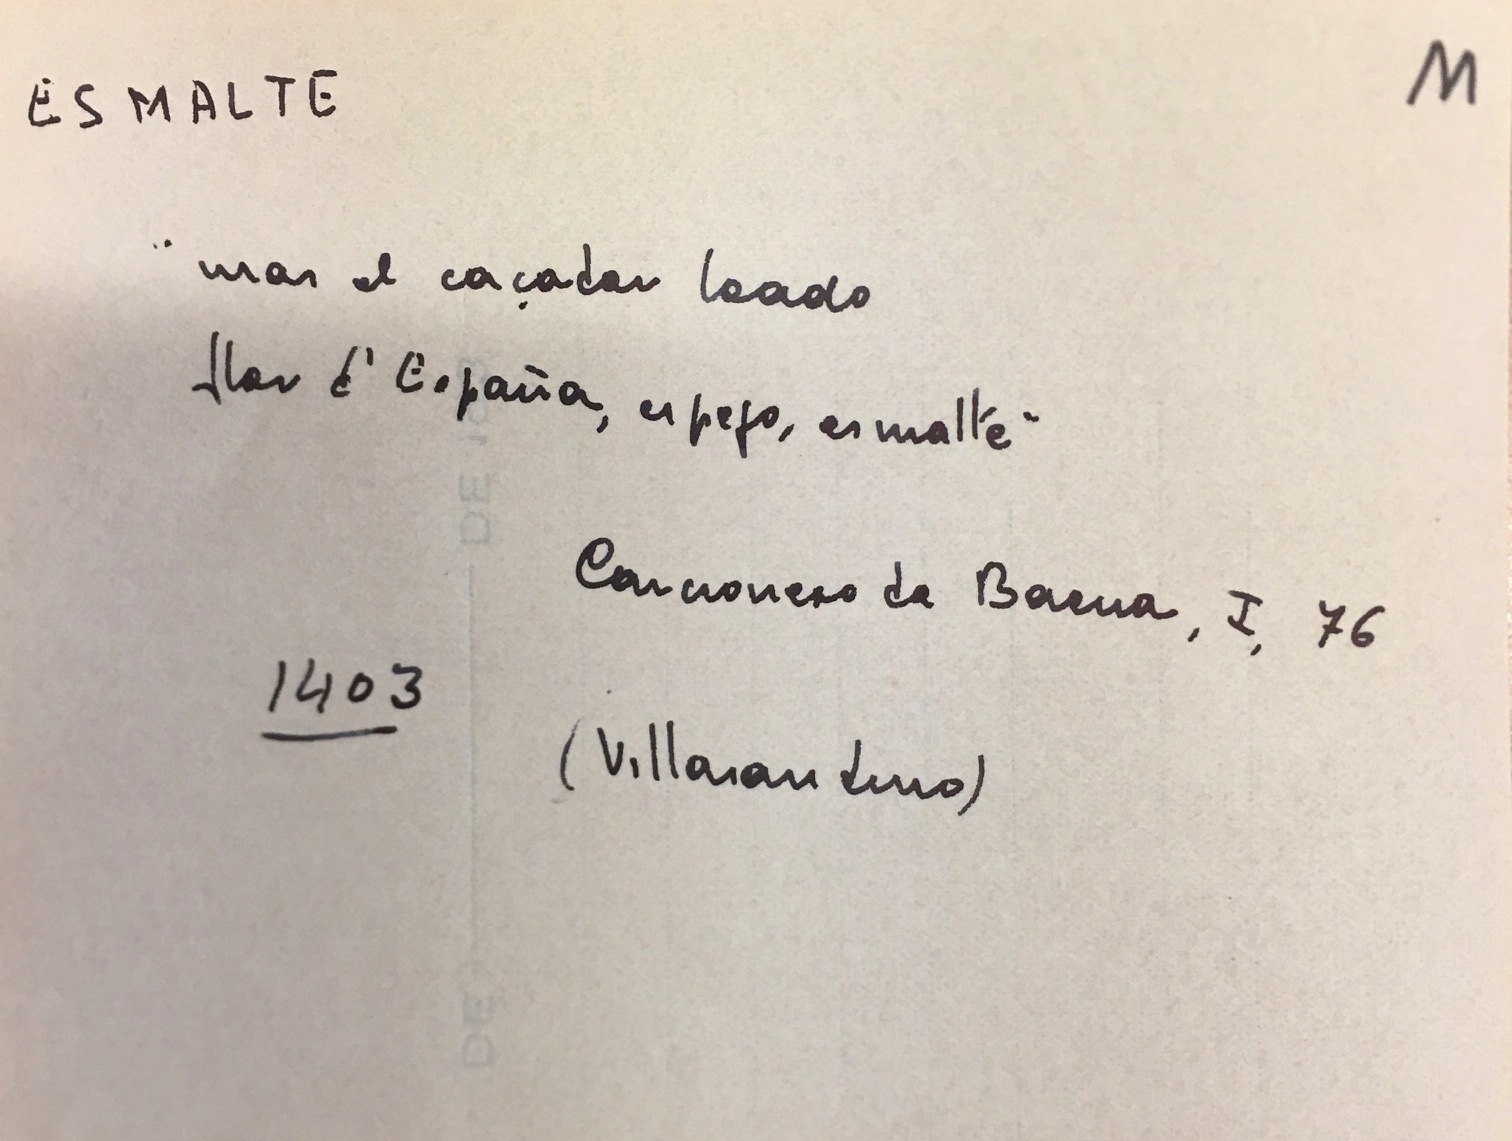 ESMALTE
M
"mas el caçador loado
flor d'España, espejo, esmalte"
Cancionero de Baena, I, 76
1403
(Villasandino)